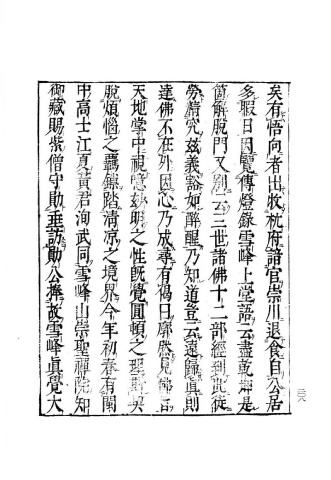 矣有悟向者出牧杭府諸官崇川退食自公居
多暇日因覽傳燈錄雪峰上堂語云盡乾坤是
箇解脫門又別云三世諸佛十二部經到此徒
勞精究茲義豁如醉醒乃知道豈云遠歸真則
達佛不在外因心乃成尋有偈曰廓然見佛旨
天地掌中視憶茲明之性既覺圓頓之理期與
脫煩惱之羈鏁踏清涼之境界今年初春有閩
中高士江夏黃君洵武同雪峰山崇聖禪院知
御藏賜紫僧守勛垂訪勛公捧故雪峰眞覺大